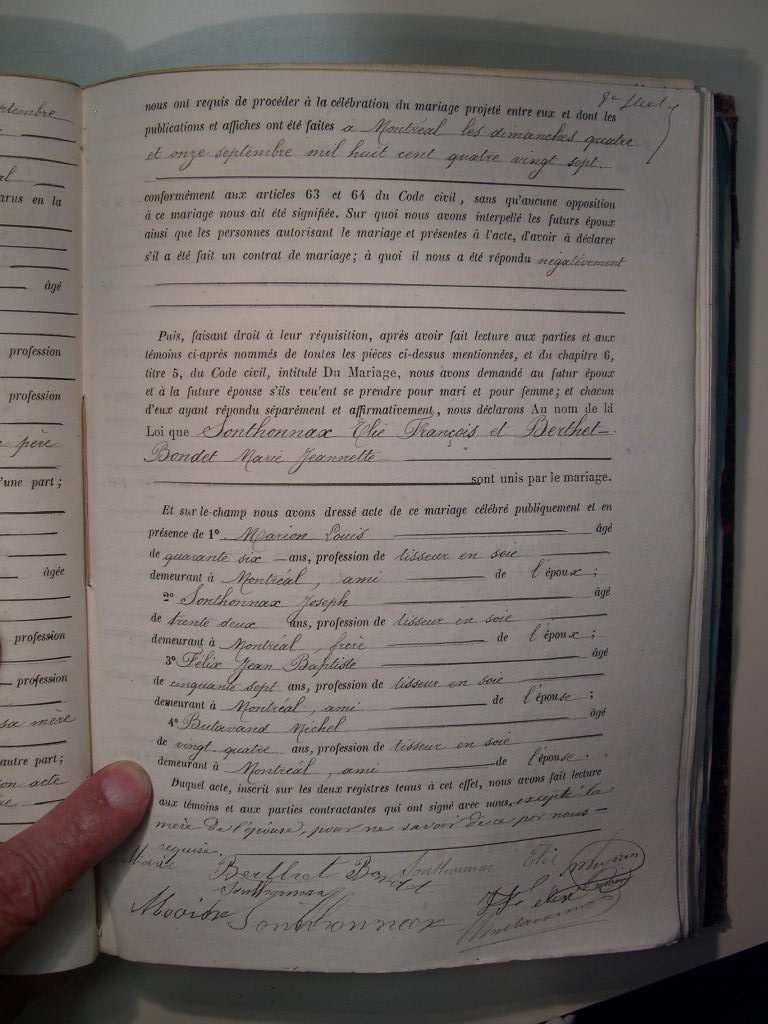 ptembre
al
arus en la
âgé
profession
profession
père
'une part;
âgée
profession
profession
sa mère
autre part;
on acte
nous ont requis de procéder à la célébration du mariage projeté entre eux et dont les
publications et affiches ont été faites à Montréal les dimanches quatre
et onze septembre mil huit cent quatre vingt sept.
conformément aux articles 63 et 64 du Code civil, sans qu'aucune opposition
à ce mariage nous ait été signifiée. Sur quoi nous avons interpellé les futurs époux
ainsi que les personnes autorisant le mariage et présentes à l'acte, d'avoir à déclarer
s'il a été fait un contrat de mariage; à quoi il nous a été répondu négativement
Puis, faisant droit à leur réquisition, après avoir fait lecture aux parties et aux
témoins ci-après nommés de toutes les pièces ci-dessus mentionnées, et du chapitre 6,
titre 5, du Code civil, intitulé Du Mariage, nous avons demandé au futur époux
et à la future épouse s'ils veulent se prendre pour mari et pour femme; et chacun
d'eux ayant répondu séparément et affirmativement, nous déclarons Au nom de la
Loi que Sonthonnax Elie François et Berthet-
Bondet Marie Jeannette
sont unis par le mariage.
Et sur-le-champ nous avons dressé acte de ce mariage célébré publiquement et en
présence de 1° Marion Louis âgé
de quarante six ans, profession de tisseur en soie
demeurant à Montréal, ami de l'époux;
2° Sonthonnax Joseph âgé
de trente deux ans, profession de tisseur en soie
demeurant à Montréal, frère de l'époux;
3° Félix Jean Baptiste âgé
de cinquante sept ans, profession de tisseur en soie
demeurant à Montréal, ami de l'épouse;
4° Butavand Michel âgé
de vingt-quatre ans, profession de tisseur en soie
demeurant à Montréal, ami de l'épouse.
Duquel acte, inscrit sur les deux registres tenus à cet effet, nous avons fait lecture
aux témoins et aux parties contractantes qui ont signé avec nous, excepté la
mère de l'épouse, pour ne savoir de ce par nous
requise.
Marie Berthet Bondet Sonthonnax Elie
Sonthonnax
Sonthonnax